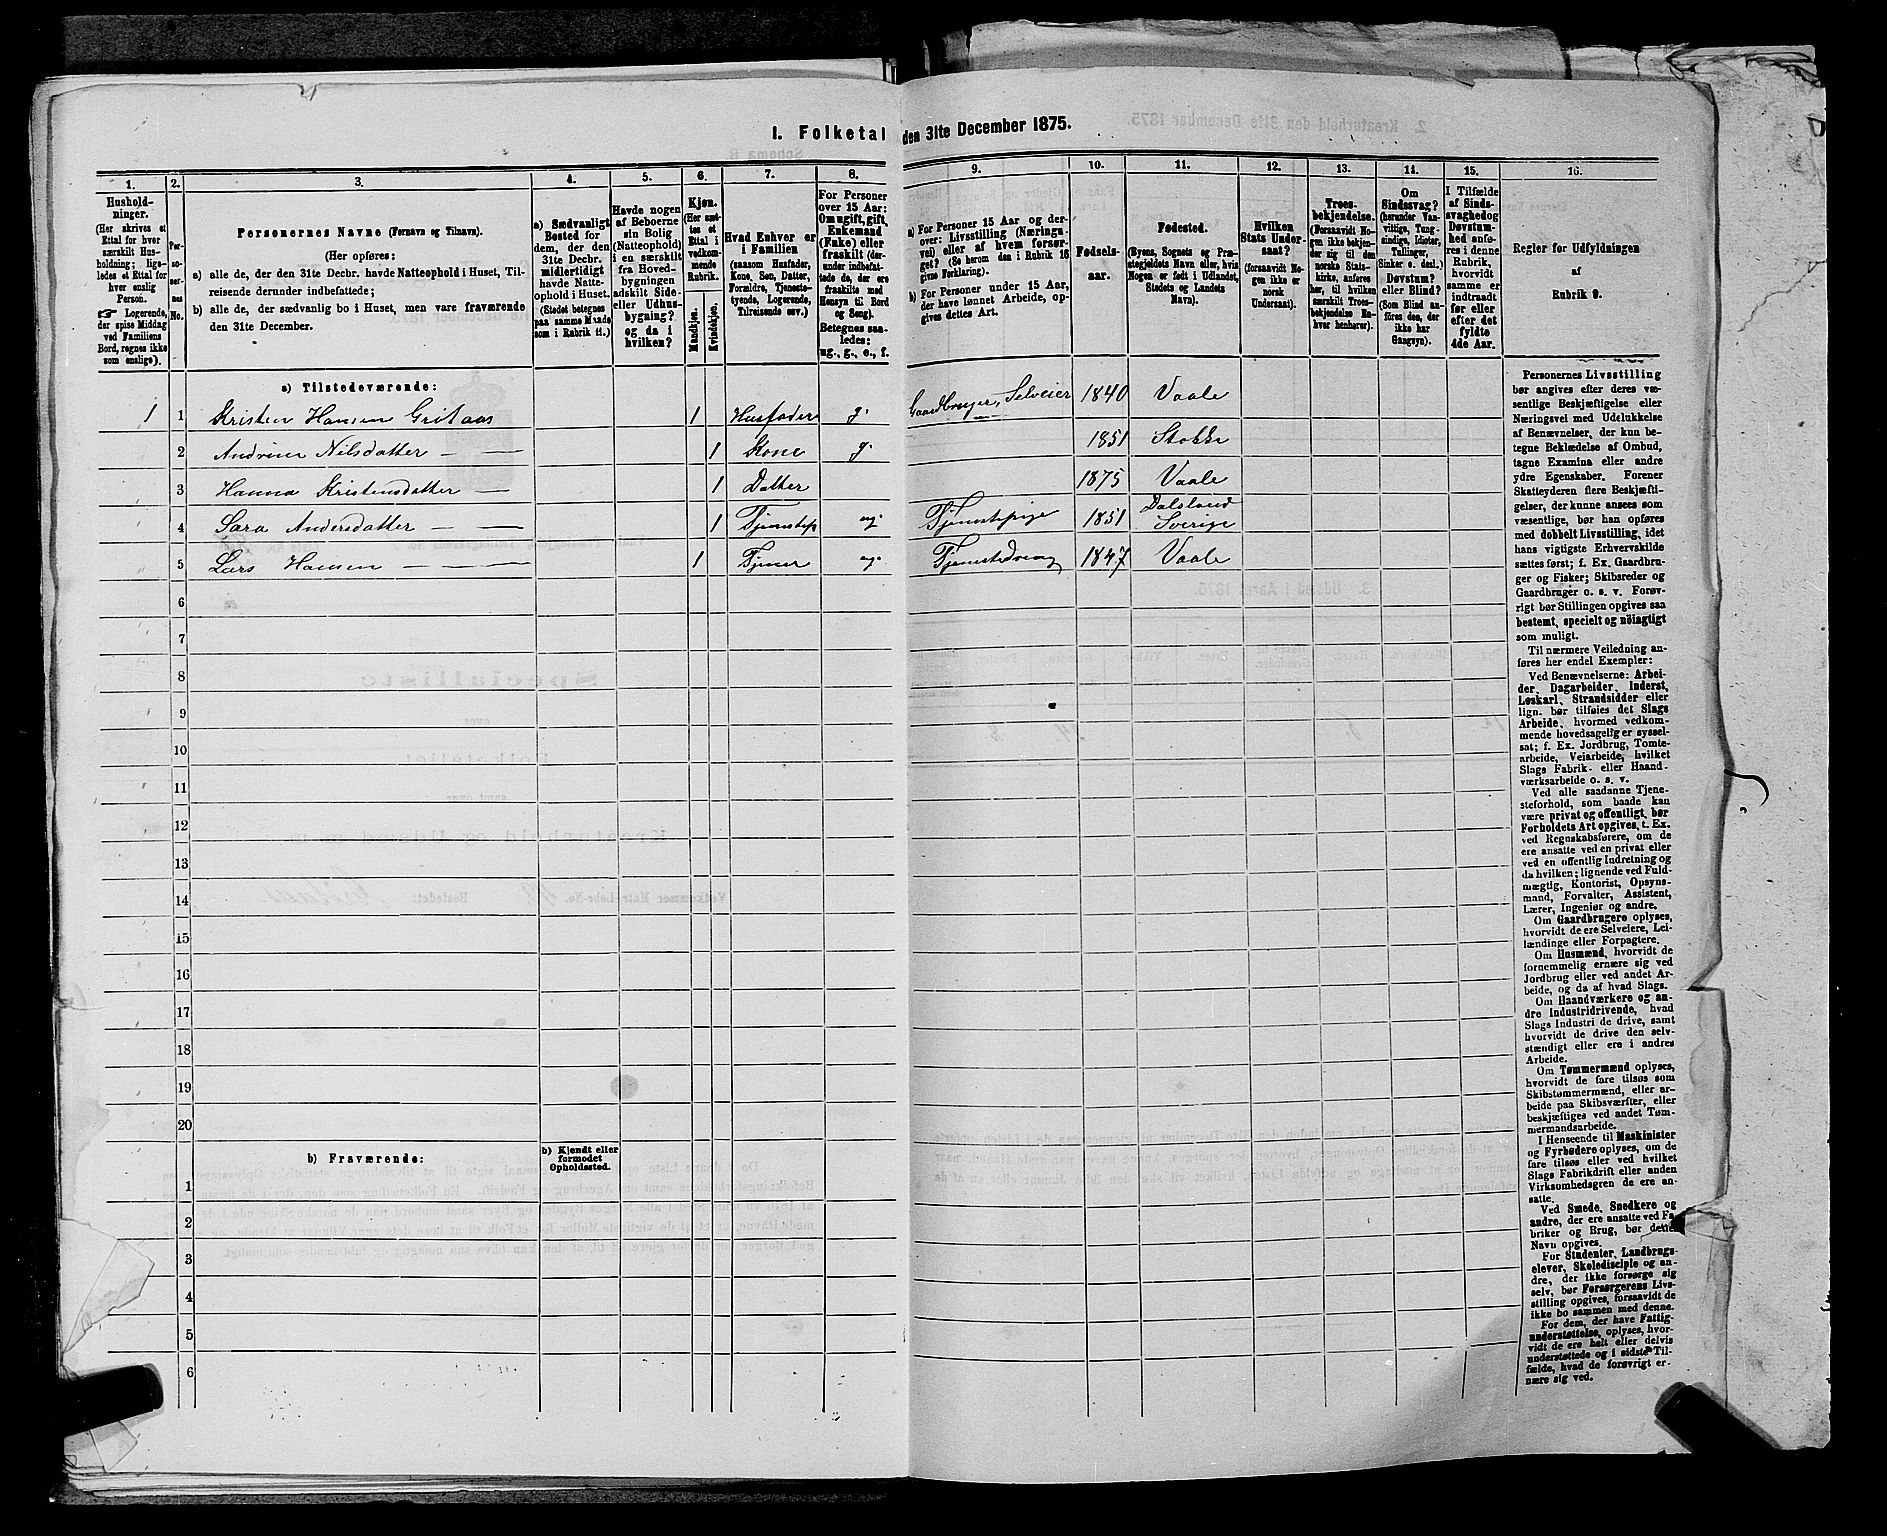 I. Folketal den 31te December 1875.
1. 2. 3. 4. 5. 6. 7. 8. 9. 10. 11. 12. 13. 14. 15. 16.
Hushold-
ninger.
(Her skrives et
Ettal for hver
særskilt Hus-
holdning; lige-
ledes et Ettal for
hver enslig
Person.
☞ Logerende,
der spise Middag
ved Familiens
Bord, regnes ikke
som enslige).
Per-
so-
ner-
nes
No.
Personernes Navne (Fornavn og Tilnavn).
(Her opføres:
a) alle de, der den 31te Decbr. havde Natteophold i Huset, Til-
reisende derunder indbefattede;
b) alle de, der sædvanlig bo i Huset, men vare fraværende
den 31te December.
a) Sædvanligt
Bosted for
dem, der den
31te Decbr.
midlertidigt
havde Natte-
ophold i Huset.
(Stedet betegnes
paa samme Maade
som i Rubrik 11.)
Havde nogen
af Beboerne
sin Bolig
(Natteophold)
i en særskilt
fra Hoved-
bygningen
adskilt Side-
eller Udhus-
bygning?
og da i
hvilken?
Kjøn.
(Her sæt-
tes et
Ettal i
vedkom-
mende
Rubrik.
Mandkjøn.
Kvindekjøn.
Hvad Enhver er
i Familien
(saasom Husfader,
Kone, Søn, Datter,
Forældre, Tjeneste-
tyende, Logerende,
Tilreisende osv.)
For Personer
over 15 Aar:
Om ugift, gift,
Enkemand
(Enke) eller
fraskilt (der-
under indbefat-
tede de, der ere
fraskilte med
Hensyn til Bord
og Seng).
Betegnes saa-
ledes:
ug., g., e., f.
a) For Personer 15 Aar og der-
over: Livsstilling (Nærings-
vei) eller af hvem forsør-
get? (Se herom den i Rubrik 16
givne Forklaring).
b) For Personer under 15 Aar,
der have lønnet Arbeide, op-
gives dettes Art.
Fødsels-
aar.
Fødested.
(Byens, Sognets og Præ-
stegjeldets Navn eller, hvis
Nogen er født i Udlandet,
Stedets og Landets
Navn).
Hvilken
Stats Under-
saat?
(forsaavidt No-
gen ikke er
norsk
Undersaat).
Troes-
bekjendelse.
(Forsaavidt No-
gen ikke bekjen-
der sig til den
norske Stats-
kirke, anføres
her, til hvilken
særskilt Troes-
bekjendelse En-
hver henhører).
Om
Sindssvag?
(herunder Van-
vittige, Tung-
sindige, Idioter,
Tullinger,
Sinker o. desl.)
Døvstum?
eller Blind?
(Som Blind an-
føres den, der
ikke har
Gangsyn).
I Tilfælde
af Sinds-
svaghed og
Døvstum-
hed anfø-
res i denne
Rubrik,
hvorvidt
samme er
indtraadt
før eller
efter det
fyldte
4de Aar.
Regler for Udfyldningen
af
Rubrik 9.
a) Tilstedeværende:
1 1 Kristen Hansen Gritaas 1 Husfader g. Gaardbruger, Selveier 1840 Vaale
2 Andrine Nilsdatter — — 1 Kone g. 1851 Stokke
3 Hanna Kristensdatter — 1 Datter 1875 Vaale
4 Sara Andersdatter — — 1 Tjenstep ug. Tjenstepige 1851 Dalsland Sverige
5 Lars Hansen — — — 1 Tjener ug. Tjenstedreng 1847 Vaale
6
7
8
9
10
11
12
13
14
15
16
17
18
19
20
b) Fraværende:
b) Kjendt eller
formodet
Opholdssted.
1
2
3
4
5
6
Personernes Livsstilling
bør angives efter deres væ-
sentlige Beskjæftigelse eller
Næringsvei med Udelukkelse
af Benævnelser, der kun be-
tegne Beklædelse af Ombud,
tagne Examina eller andre
ydre Egenskaber. Forener
Skatteyderen flere Beskjæfti-
gelser, der kunne ansees som
væsentlige, bør han opføres
med dobbelt Livsstilling, idet
hans vigtigste Erhvervskilde
sættes først; f. Ex. Gaardbru-
ger og Fisker; Skibsreder og
Gaardbruger o. s. v. Forøv-
rigt bør Stillingen opgives saa
bestemt, specielt og nöiagtigt
som muligt.
Til nærmere Veiledning an-
føres her endel Exempler:
Ved Benævnelserne: Arbei-
der, Dagarbeider, Inderst,
Løskarl, Strandsidder eller
lign. bør tilføies det Slags
Arbeide, hvormed vedkom-
mende hovedsagelig er syssel-
sat; f. Ex. Jordbrug, Tomte-
arbeide, Veiarbeide, hvilket
Slags Fabrik- eller Haand-
værksarbeide o. s. v.
Ved alle saadanne Tjene-
steforhold, som baade kan
være privat og offentligt, bør
Forholdets Art opgives, t. Ex.
ved Regnskabsførere, om de
ere ansatte ved en privat eller
ved en offentlig Indretning og
da hvilken; lignende ved Fuld-
mægtig, Kontorist, Opsyns-
mand, Forvalter, Assistent,
Lærer, Ingeniør og andre.
Om Gaardbrugere oplyses,
hvorvidt de ere Selveiere, Lei-
lændinge eller Forpagtere.
Om Husmænd, hvorvidt de
fornemmelig ernære sig ved
Jordbrug eller ved andet Ar-
beide, og da af hvad Slags.
Om Haandværkere og an-
dre Industridrivende, hvad
Slags Industri de drive, samt
hvorvidt de drive den selv-
stændigt eller ere i andres
Arbeide.
Om Tømmermænd oplyses,
hvorvidt de fare tilsøs som
Skibstømmermænd, eller ar-
beide paa Skibsværfter, eller
beskjæftiges ved andet Tøm-
mermandsarbeide.
I Henseende til Maskinister
og Fyrbødere oplyses, om de
fare tilsøs eller ved hvilket
Slags Fabrikdrift eller anden
Virksomhedsgren de ere an-
satte.
Ved Smede, Snedkere og
andre, der ere ansatte ved Fa-
briker og Brug, bør dette
Navn opgives.
For Studenter, Landbrugs-
elever, Skoledisciple og an-
dre, der ikke forsørge sig
selv, bør Forsørgerens Livs-
stilling opgives, forsaavidt de
ikke bo sammen med denne.
For dem, der have Fattig-
understøttelse, oplyses, hvor-
vidt de ere helt eller delvis
understøttede og i sidste Til-
fælde, hvad de forøvrigt er-
nære sig ved.